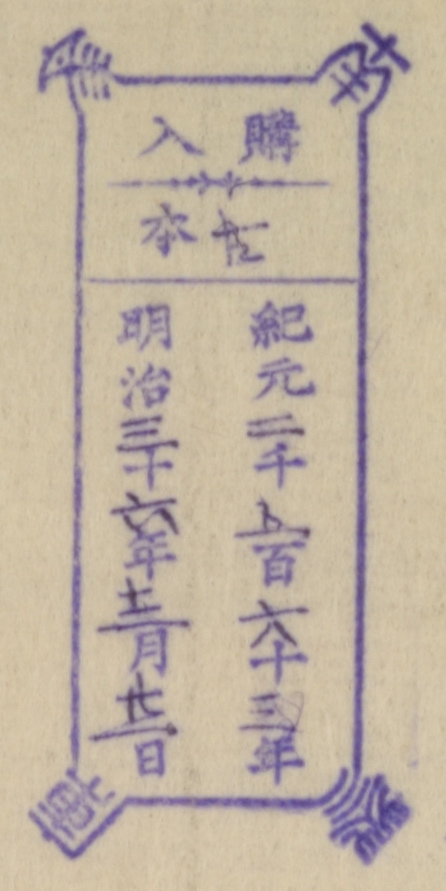 購入
本
紀元二千五百六十三年
明治三十六年十二月 日